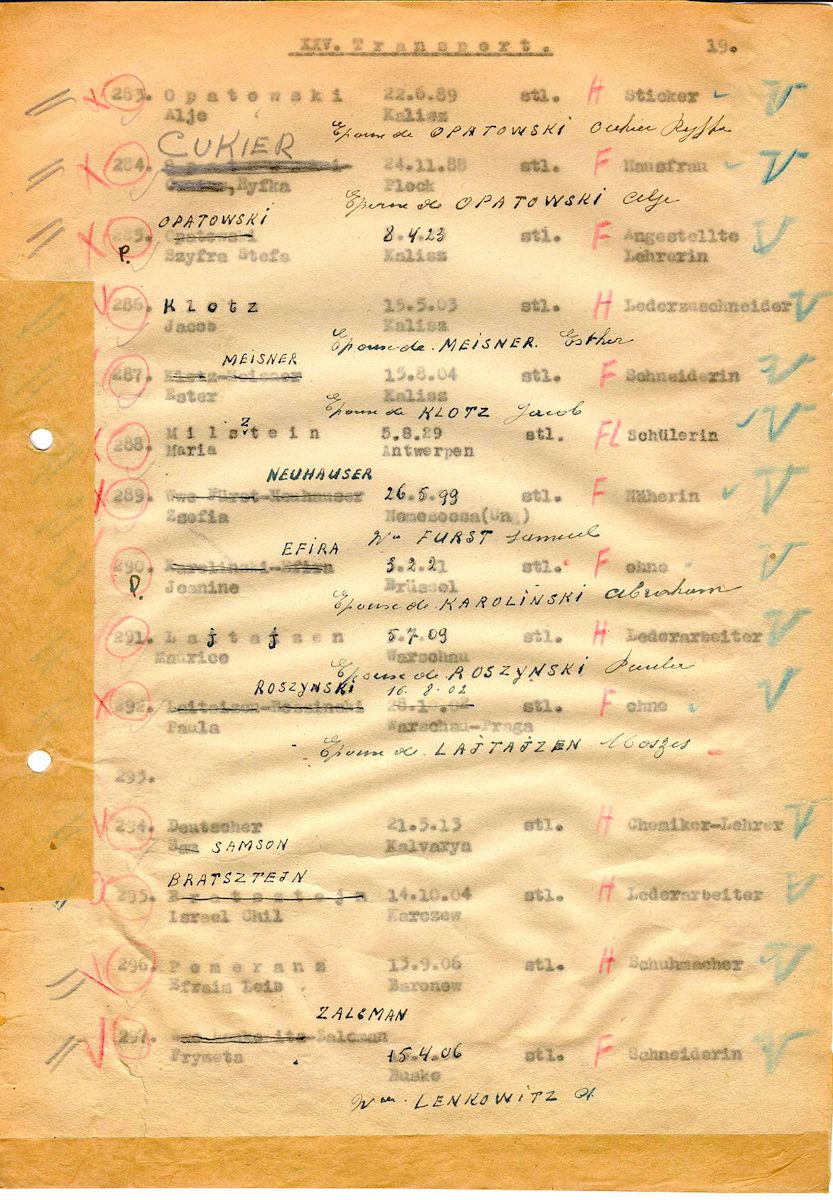 XXV. Transport. 19.
283. Opatowski 22.6.89 stl. H Sticker
Alje Kalisz
Epouse de OPATOWSKI Cukier Ryfka
CUKIER
284. 24.11.88 stl. F Hausfrau
Ryfka Plock
Epouse de OPATOWSKI Alje
OPATOWSKI
285. Opatowski 8.4.23 stl. F Angestellte
P. Szyfra Stefa Kalisz Lehrerin
286. Klotz 15.5.03 stl. H Lederzuschneider
Jacob Kalisz
Epouse de MEISNER Esther
MEISNER
287. Klotz-Meisner 15.8.04 stl. F Schneiderin
Ester Kalisz
Epouse de KLOTZ Jacob
288. Milsztein 5.8.29 stl. FL Schülerin
Maria Antwerpen
NEUHAUSER
289. Uwe Fürst-Neuhauser 26.5.99 stl. F Näherin
Zsofia Nemescosa(Ung)
Wwe FURST Samuel
EFIRA
290. Karolinski-Efira 3.2.21 stl. F ohne
P. Jeanine Brüssel
Epouse de KAROLINSKI Abraham
291. Lajtajzen 5.7.09 stl. H Lederarbeiter
Maurice Warschau
Epouse de ROSZYNSKI Paula
ROSZYNSKI 16 8 02
292. Leiteisen-Rossinski stl. F ohne
Paula Warschau-Praga
Epouse de LAJTAJZEN Moszes
293.
294. Deutscher 21.5.13 stl. H Chemiker-Lehrer
SAMSON Kalvarya
BRATSZTEJN
295. Bratsztejn 14.10.04 stl. H Lederarbeiter
Israel Chil Karczew
296. Pomeranz 15.9.06 stl. H Schuhmacher
Efraim Leib Baronow
ZALCMAN
297. Zalcman
Frymeta 15.4.06 stl. F Schneiderin
Busko
Wwe LENKOWITZ A